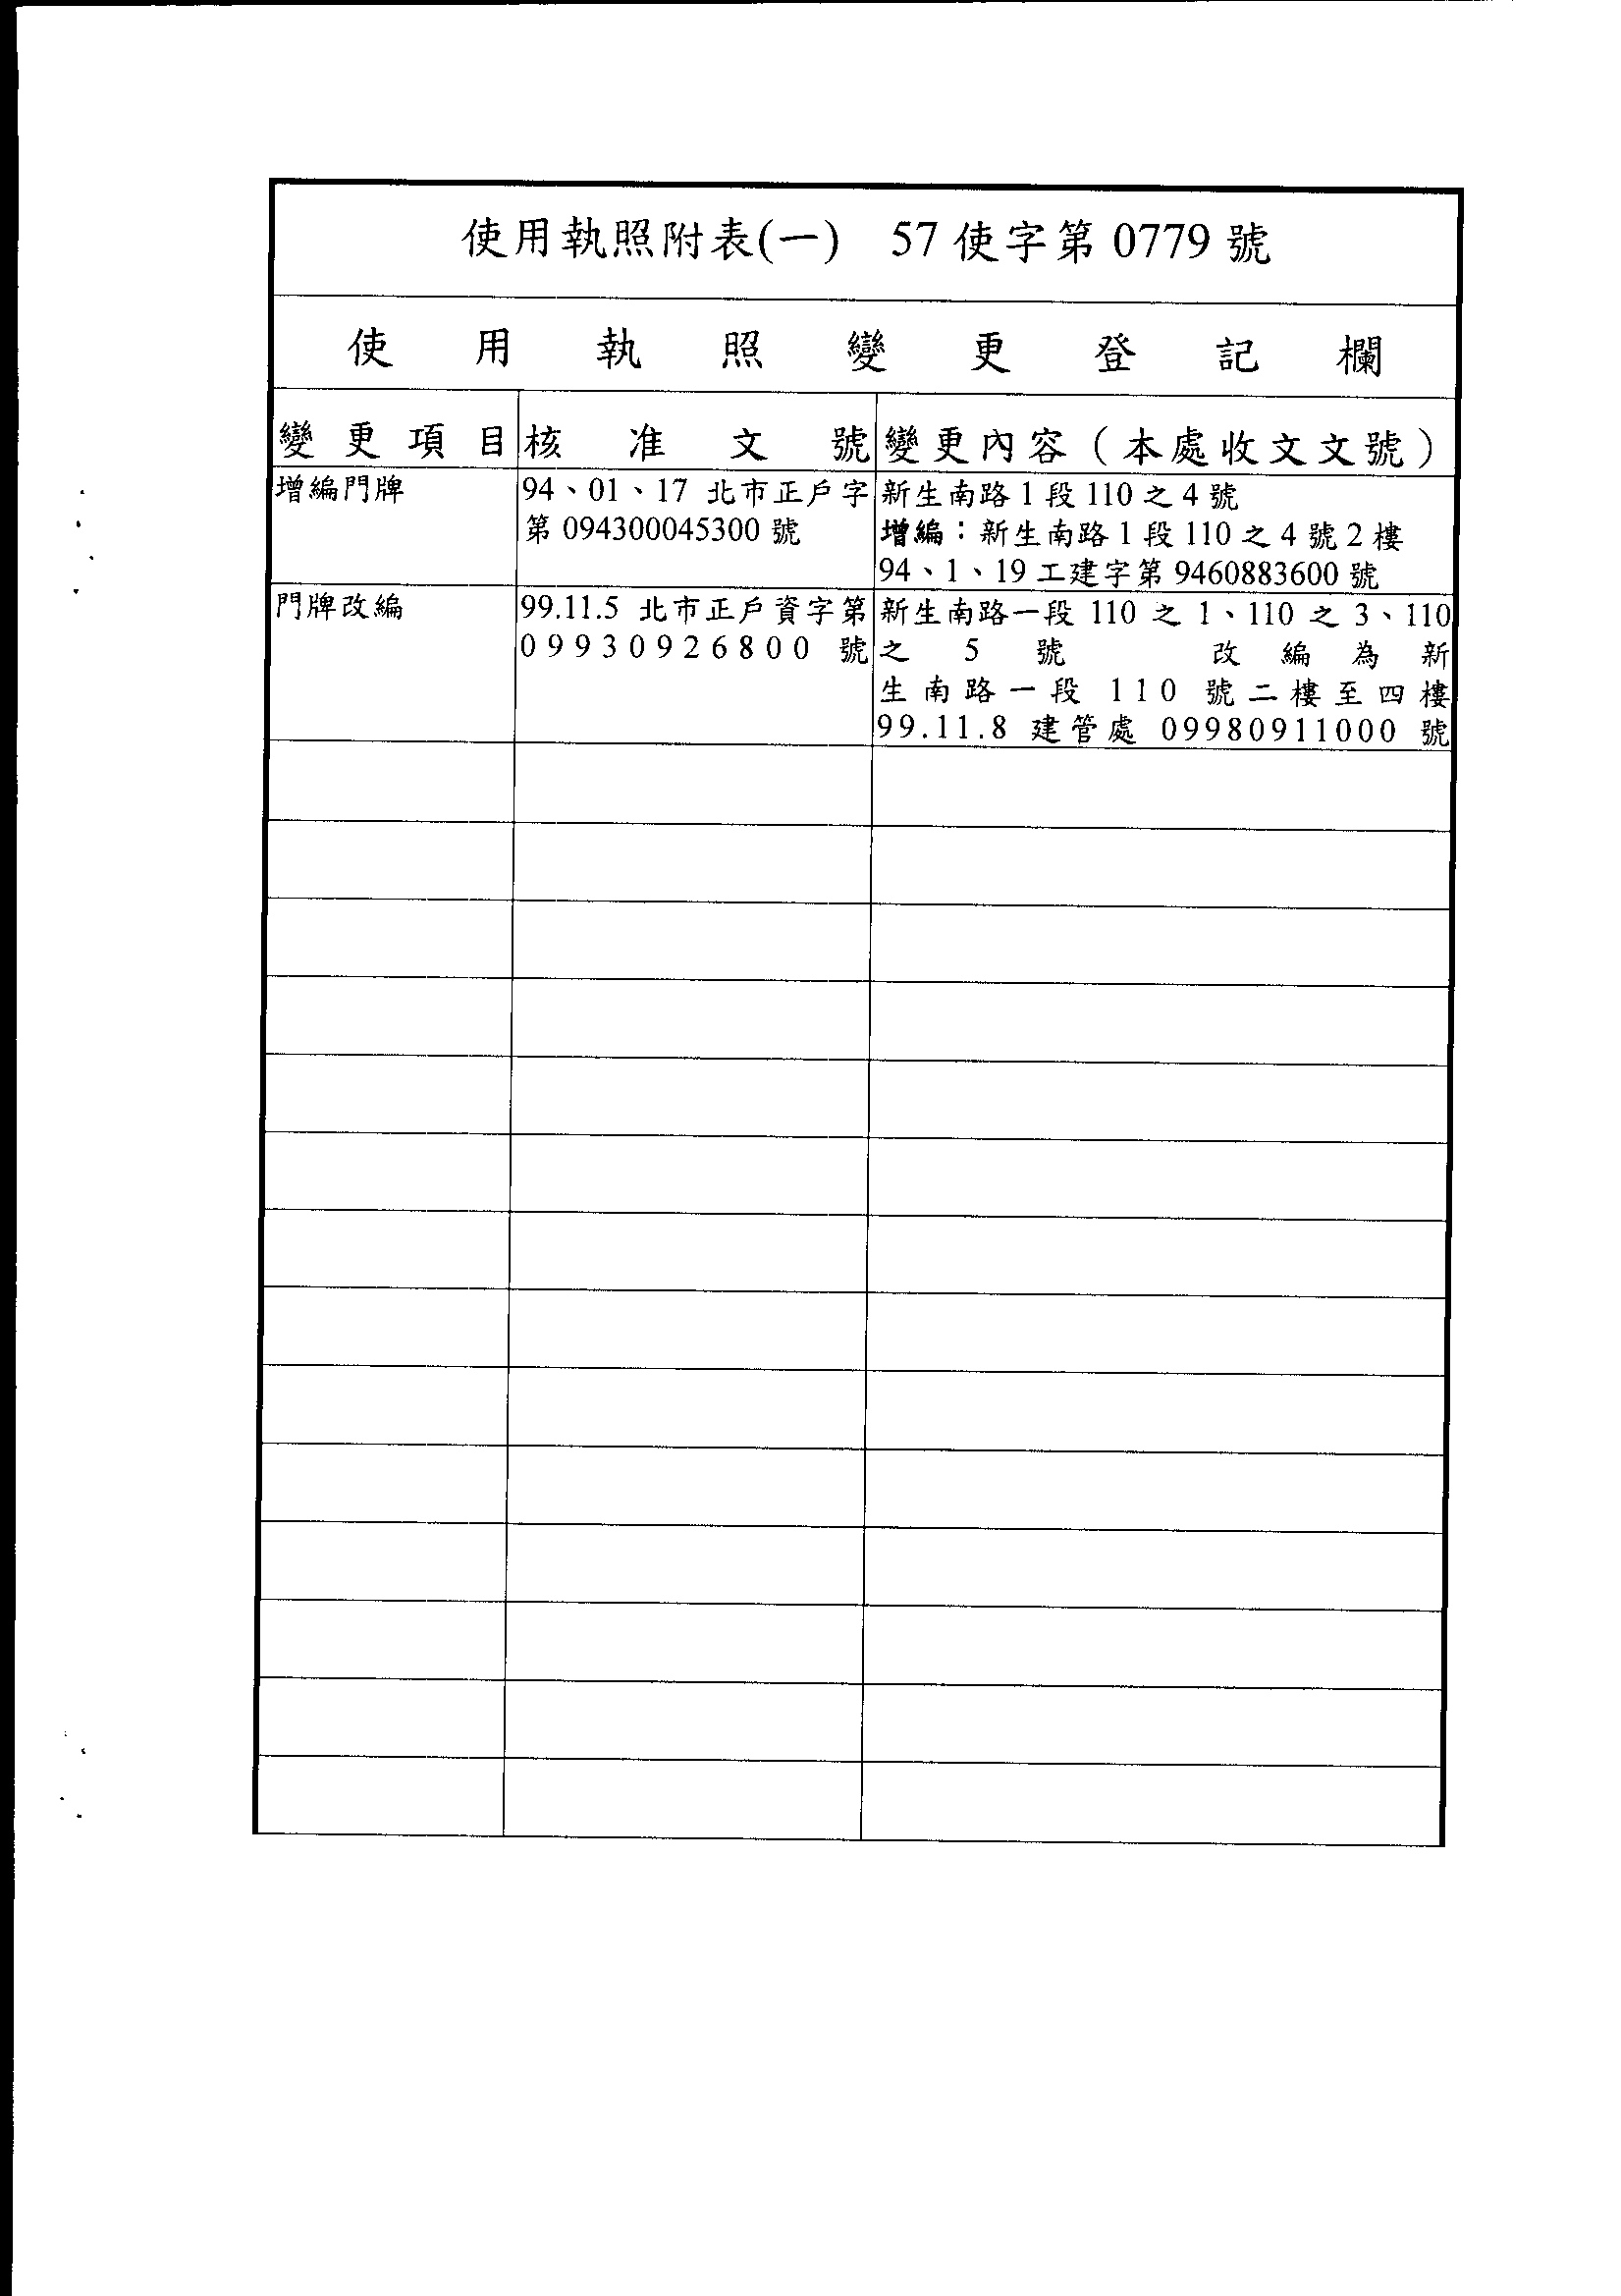 使用執照附表(一) 57使字第0779號
使用執照變更登記欄
變更項目 核准文號 變更內容（本處收文文號）
增編門牌
94、01、17 北市正戶字
第094300045300號
新生南路1段110之4號
增編：新生南路1段110之4號2樓
94、1、19工建字第9460883600號
門牌改編
99.11.5 北市正戶資字第
09930926800號
新生南路一段 110 之 1、110 之 3、110
之 5 號 改編為新
生南路一段 110 號二樓至四樓
99.11.8 建管處 09980911000 號